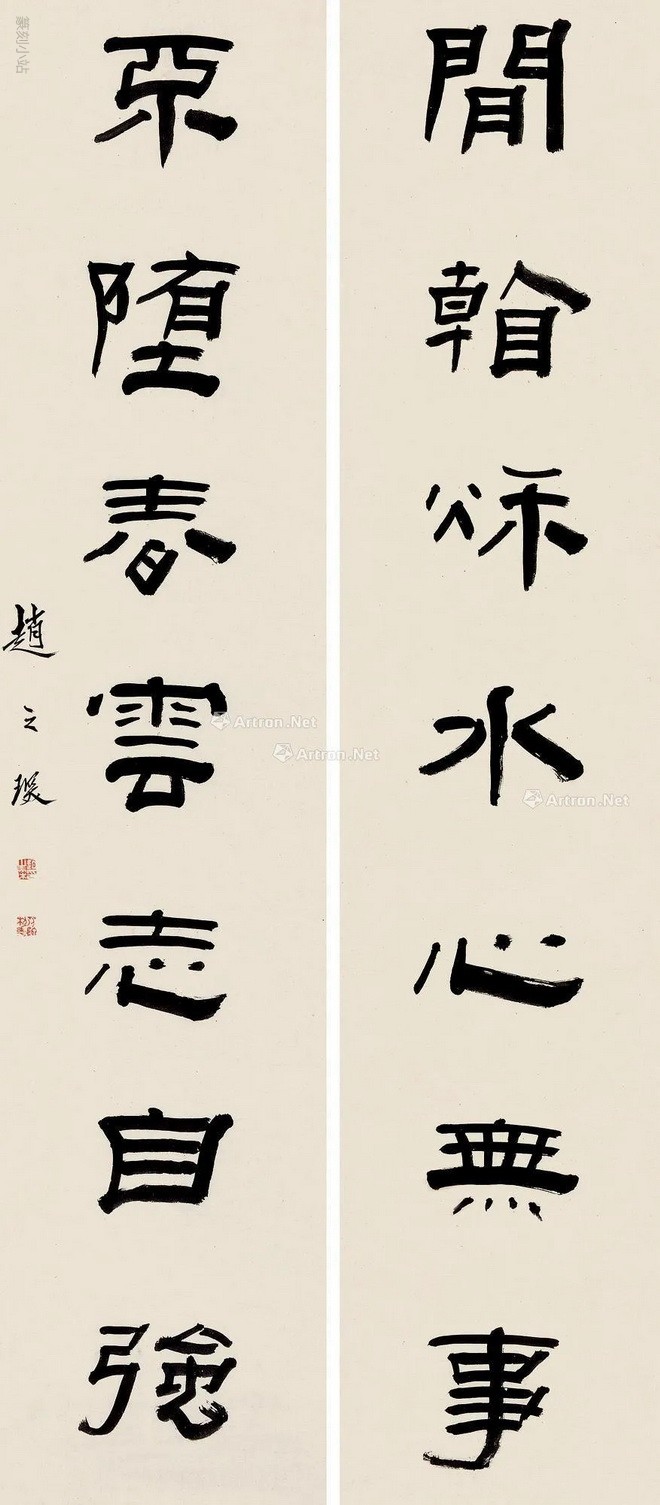 閒水心無事
堕春雲志自強
趙之琛
篆刻小站
Artron.Net
Artron.Net
Artron.Net